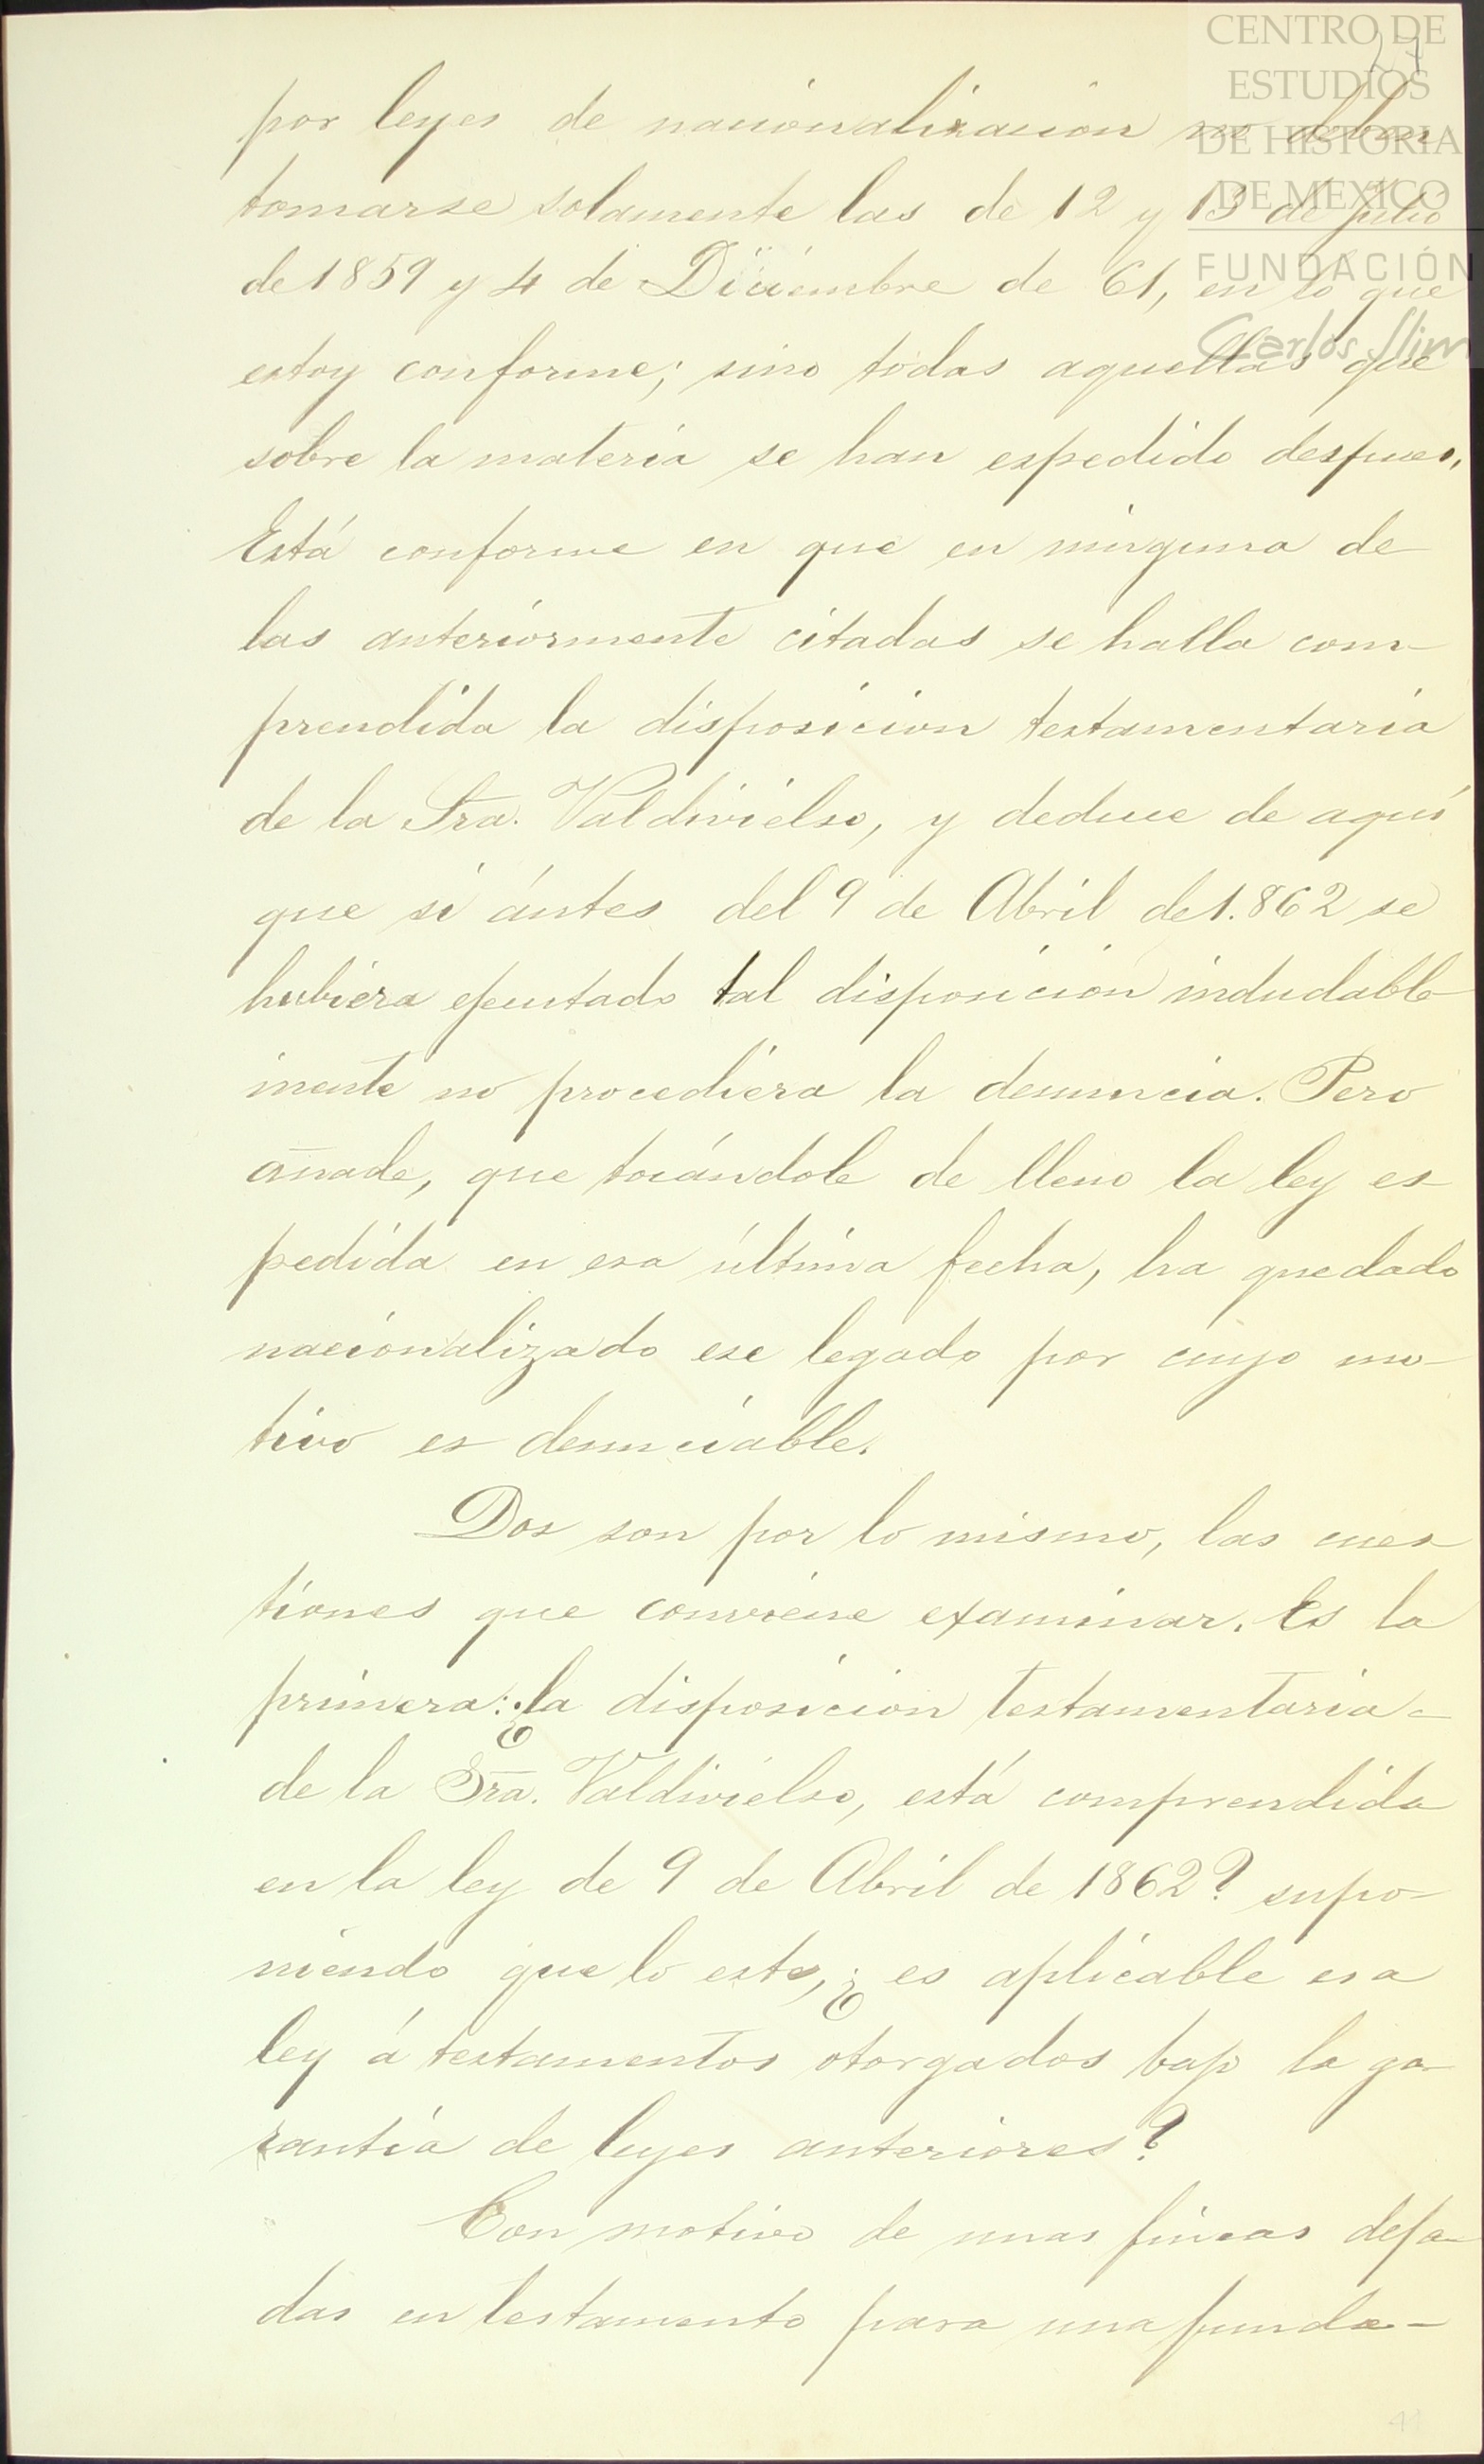 CENTRO DE
ESTUDIOS
DE HISTORIA
DE MEXICO
FUNDACIÓN
Carlos Slim
27
por leyes de nacionalizacion no deben
tomarse solamente las de 12 y 13 de julio
de 1859 y 4 de Diciembre de 61, en lo que
estoy conforme; sino todas aquellas que
sobre la materia se han espedido despues.
Está conforme en que en ninguna de
las anteriormente citadas se halla com-
prendida la disposicion testamentaria
de la Sra. Valdivielso, y deduce de aquí
que si ántes del 9 de Abril de 1.862 se
hubiera ejecutado tal disposicion indudable
mente no procediera la denuncia. Pero
añade, que tocándole de lleno la ley es-
pedida en esa última fecha, ha quedado
nacionalizado ese legado por cuyo mo-
tivo es denunciable.
Dos son por lo mismo, las cues
tiones que conviene examinar. Es la
primera: ¿la disposicion testamentaria
de la Sra. Valdivielso, está comprendida
en la ley de 9 de Abril de 1862? supo-
niendo que lo este, ¿es aplicable esa
ley á testamentos otorgados bajo la ga-
rantía de leyes anteriores?
Con motivo de unas fincas deja-
das en testamento para una funda-